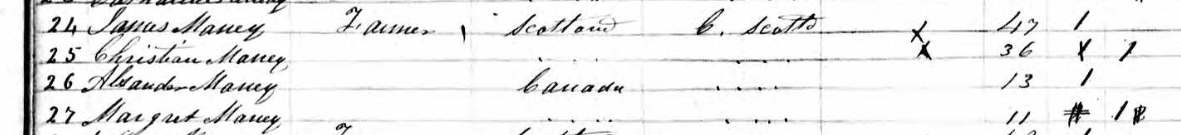 24 James Maney Farmer Scotland C. Scotts X 47 1
25 Christian Maney . . . . . . . X 36 1
26 Alexander Maney Canada . . . . 13 1
27 Margret Maney . . . . . . . . 11 1